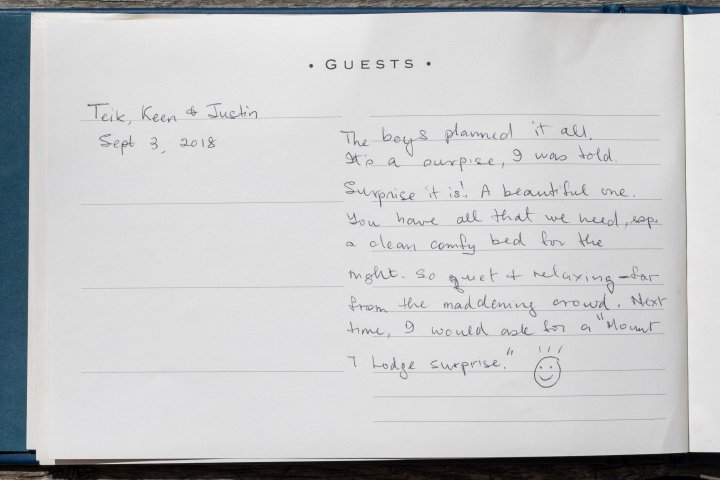 • GUESTS •
Teik, Keen & Justin
Sept 3, 2018
The boys planned it all.
It's a surpise, I was told.
Surprise it is! A beautiful one.
You have all that we need, esp.
a clean comfy bed for the
night. So quet & relaxing - far
from the maddening crowd. Next
time, I would ask for a "Mount
7 Lodge surprise."